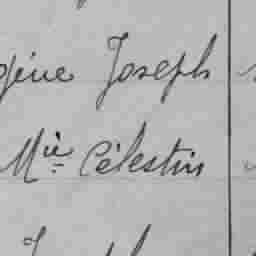 gène Joseph
Mie Célestin